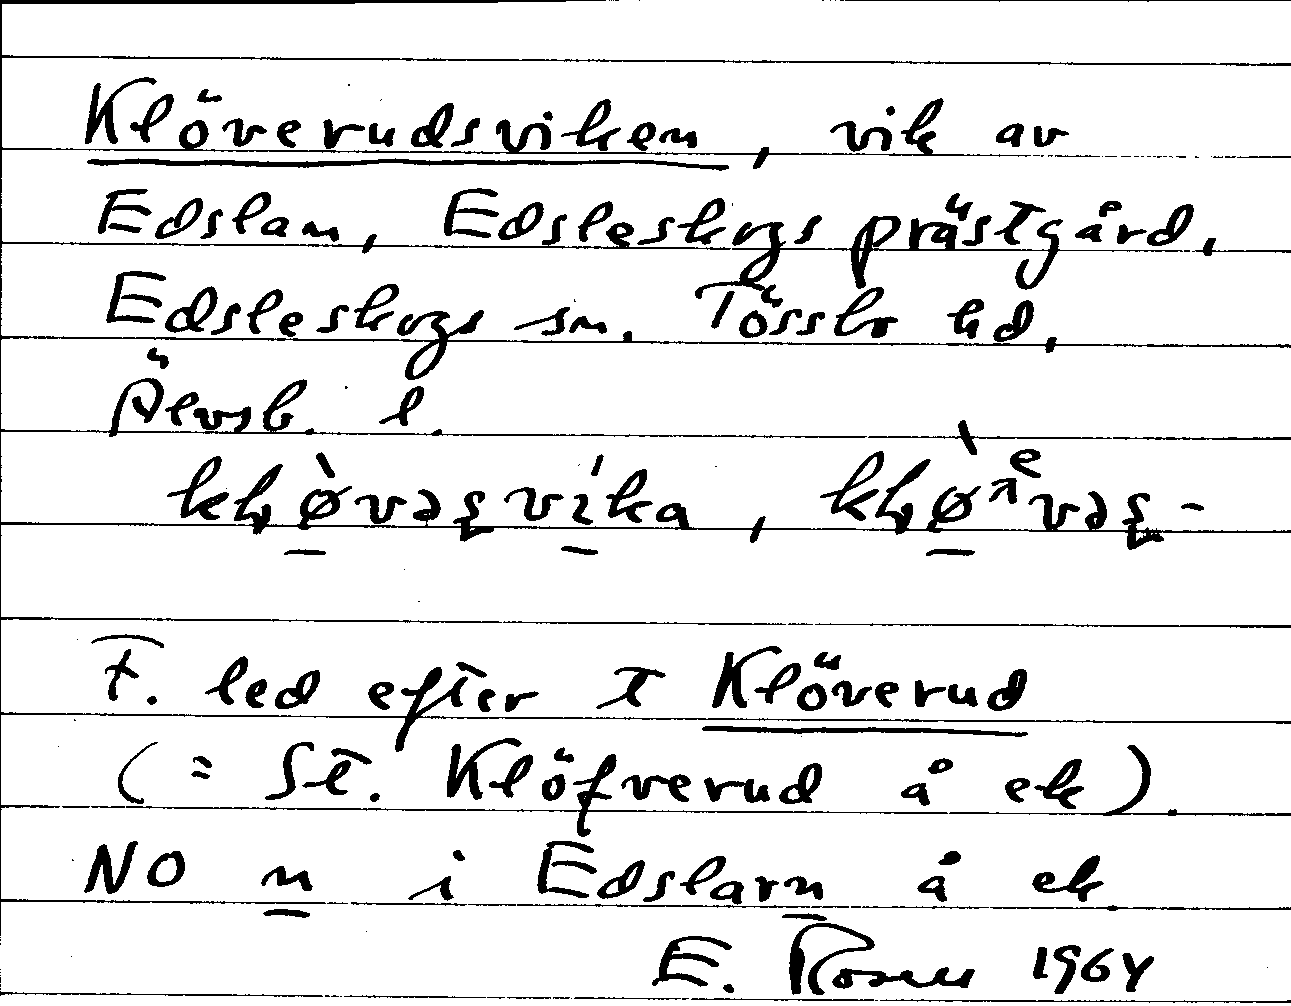 Klöverudsviken, vik av
Edslan, Edsleskogs prästgård,
Edsleskogs sn. Tössbo hd,
Älvsb. l.
F. led efter t Klöverud
(= St. Klöfverud å ek).
NO n i Edslarn å ek.
E. 1964